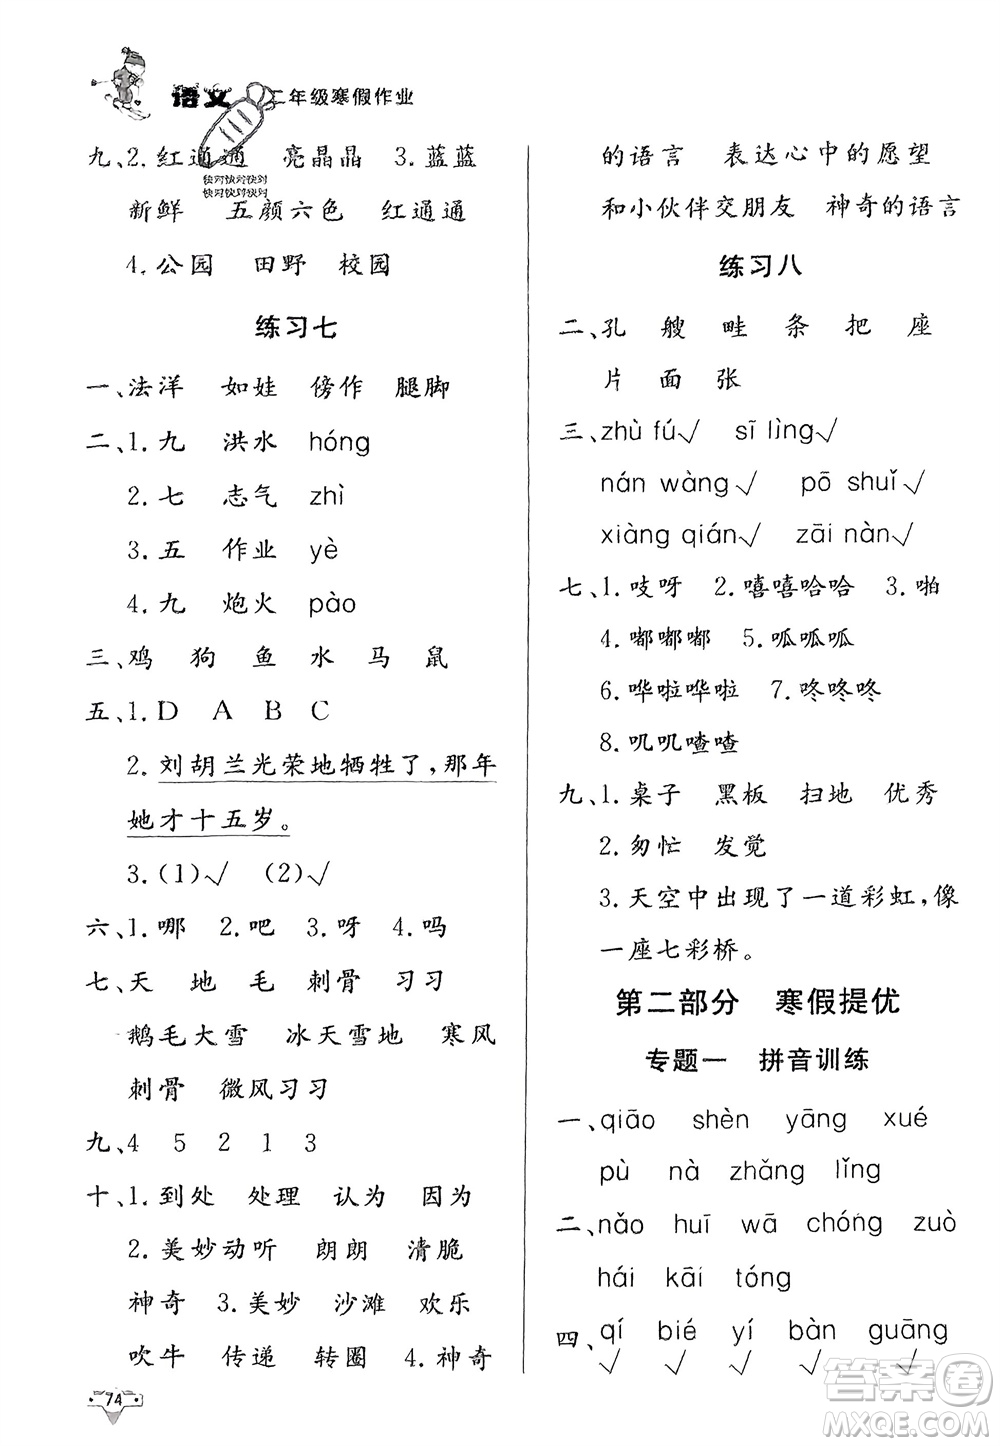 语文 二年级寒假作业
九、2. 红通通 亮晶晶 3. 蓝蓝
快对快对快对
快对快对快对
新鲜 五颜六色 红通通
4. 公园 田野 校园
练习七
一、法洋 如娃 傍作 腿脚
二、1. 九 洪水 hóng
2. 七 志气 zhì
3. 五 作业 yè
4. 九 炮火 pào
三、鸡 狗 鱼 水 马 鼠
五、1. D A B C
2. 刘胡兰光荣地牺牲了，那年
她才十五岁。
3. (1)√ (2)√
六、1. 哪 2. 吧 3. 呀 4. 吗
七、天 地 毛 刺骨 习习
鹅毛大雪 冰天雪地 寒风
刺骨 微风习习
九、4 5 2 1 3
十、1. 到处 处理 认为 因为
2. 美妙动听 朗朗 清脆
神奇 3. 美妙 沙滩 欢乐
吹牛 传递 转圈 4. 神奇
74
的语言 表达心中的愿望
和小伙伴交朋友 神奇的语言
练习八
二、孔 艘 畦 条 把 座
片 面 张
三、zhù fú√ sī lìng√
nán wàng√ pō shuǐ√
xiàng qián√ zāi nàn√
七、1. 吱呀 2. 嘻嘻哈哈 3. 啪
4. 嘟嘟嘟 5. 呱呱呱
6. 哗啦哗啦 7. 咚咚咚
8. 叽叽喳喳
九、1. 桌子 黑板 扫地 优秀
2. 匆忙 发觉
3. 天空中出现了一道彩虹，像
一座七彩桥。
第二部分 寒假提优
专题一 拼音训练
一、qiāo shèn yāng xué
pù nà zhǎng lǐng
二、nǎo huī wā chóng zuò
hái kāi tóng
四、qí bié yí bàn guāng
√ √ √ √ √
答案圈
MXQE.COM